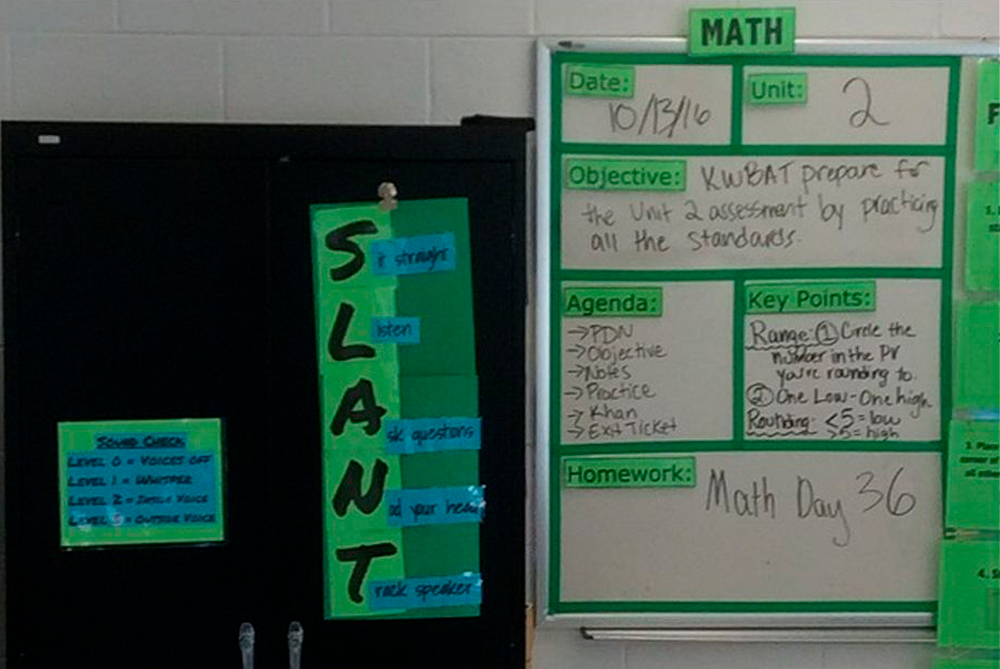 SOUND CHECK
LEVEL 0 = VOICES OFF
LEVEL 1 = WHISPER
LEVEL 2 = INSIDE VOICE
LEVEL 3 = OUTSIDE VOICE
Sit straight
Listen
Ask questions
Nod your head
Track speaker
MATH
Date: 10/13/16
Unit: 2
Objective: KWBAT prepare for
the Unit 2 assessment by practicing
all the standards.
Agenda:
→PDN
→Objective
→Notes
→Practice
→Khan
→Exit Ticket
Key Points:
Range: ① Circle the
number in the PV
you're rounding to.
② One Low - One high
Rounding: <5 = low
≥5 = high
Homework: Math Day 36